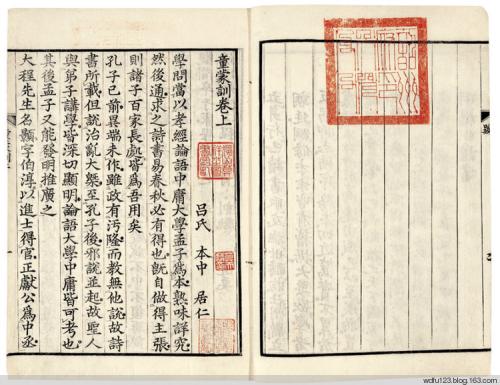 童蒙訓卷上
呂氏 本中 居仁
學問當以孝經論語中庸大學孟子爲本熟味詳究
然後通求之詩書易春秋必有得也旣自做得主張
則諸子百家長處皆爲吾用矣
孔子已前異端未作雖政有汙隆而教無他說故詩
書所載但說治亂大槩至孔子後邪說並起故聖人
與弟子講學皆深切顯明論語大學中庸皆可考也
其後孟子又能發明推廣之
大程先生名顥字伯淳以進士得官正獻公爲中丞
wdfu123.blog.163.com